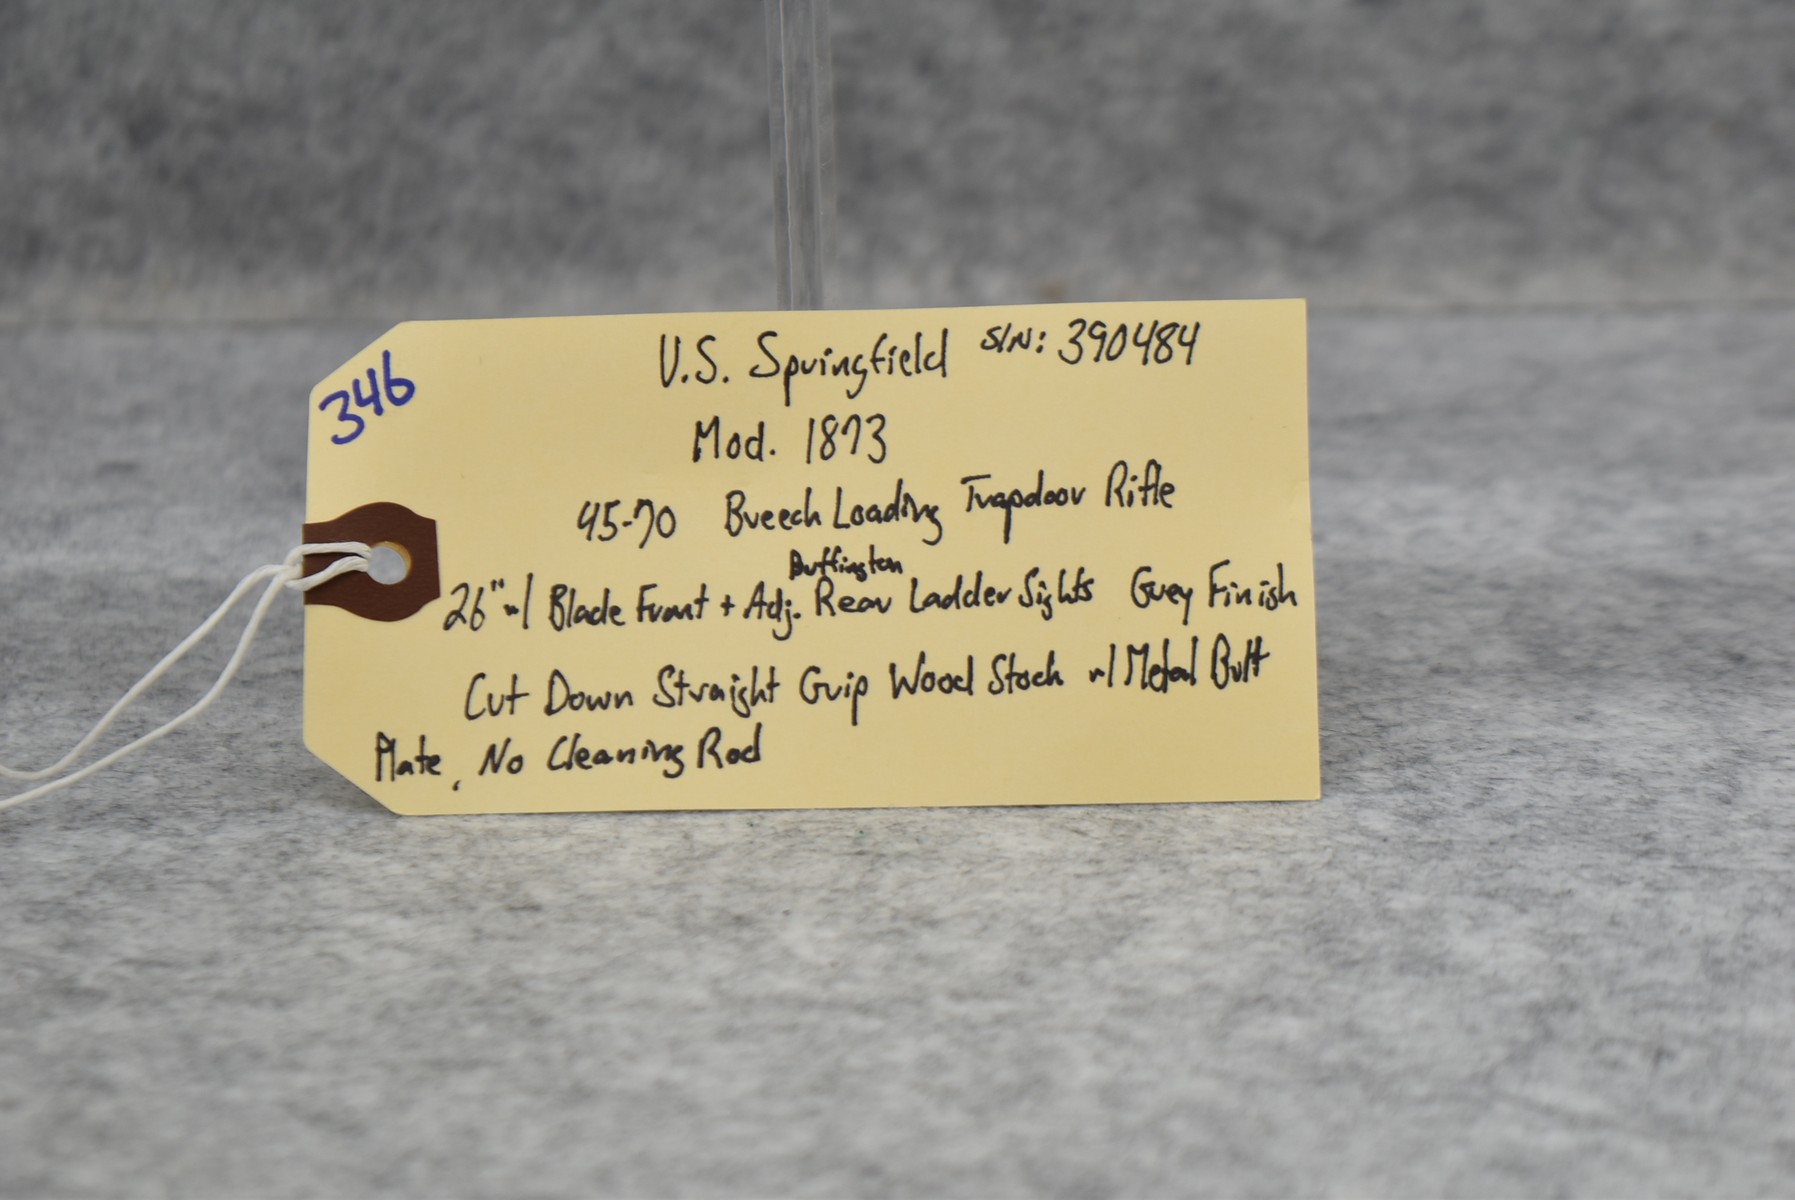 346
U.S. Springfield S/N: 390484
Mod. 1873
45-70 Breech Loading Trapdoor Rifle
Buffington
26" w/ Blade Front + Adj. Rear Ladder Sights Grey Finish
Cut Down Straight Grip Wood Stock w/ Metal Butt
Plate, No Cleaning Rod